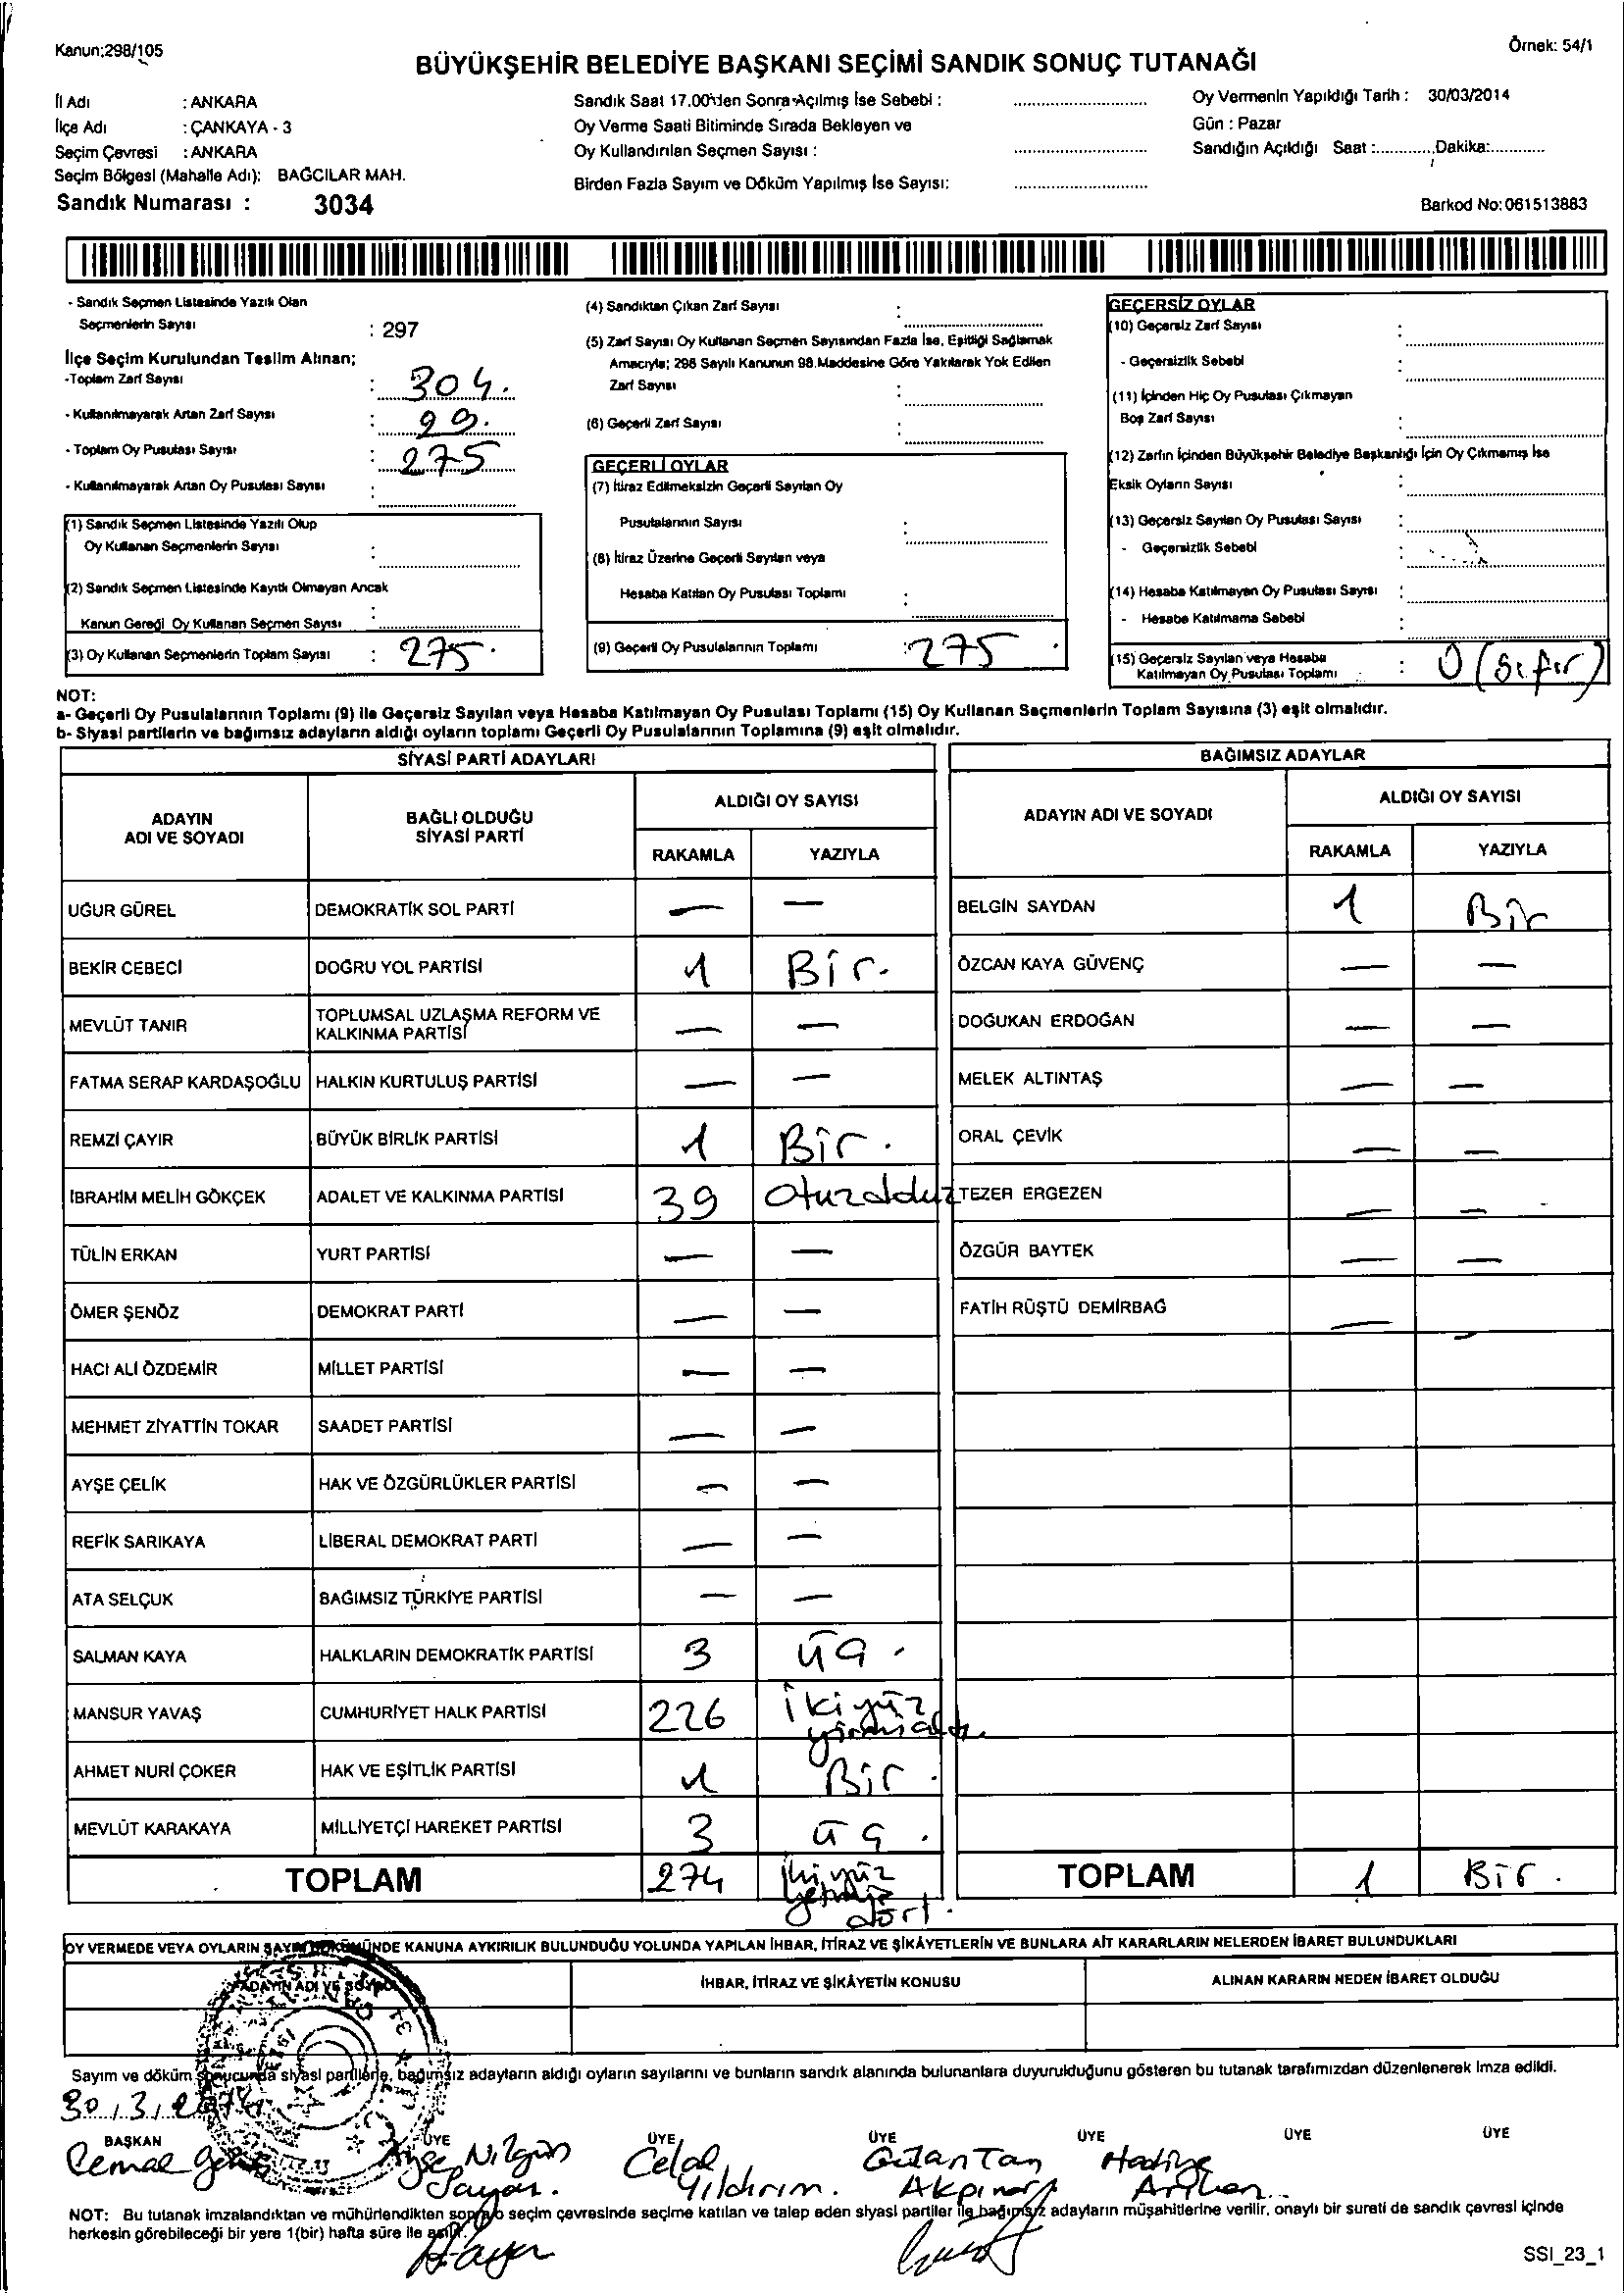 Kanun;298/105
Örnek: 54/1
BÜYÜKŞEHİR BELEDİYE BAŞKANI SEÇİMİ SANDIK SONUÇ TUTANAĞI
İl Adı : ANKARA
İlçe Adı : ÇANKAYA - 3
Seçim Çevresi : ANKARA
Seçim Bölgesi (Mahalle Adı): BAĞCILAR MAH.
Sandık Numarası : 3034
Sandık Saat 17.00'den Sonra Açılmış İse Sebebi :
Oy Verme Saati Bitiminde Sırada Bekleyen ve
Oy Kullandırılan Seçmen Sayısı :
Birden Fazla Sayım ve Döküm Yapılmış İse Sayısı:
Oy Vermenin Yapıldığı Tarih : 30/03/2014
Gün : Pazar
Sandığın Açıldığı Saat :............Dakika:............
Barkod No: 061513883
- Sandık Seçmen Listesinde Yazılı Olan
Seçmenlerin Sayısı : 297
İlçe Seçim Kurulundan Teslim Alınan;
-Toplam Zarf Sayısı : 304.
- Kullanılmayarak Artan Zarf Sayısı : 29.
- Toplam Oy Pusulası Sayısı : 275
- Kullanılmayarak Artan Oy Pusulası Sayısı :
(1) Sandık Seçmen Listesinde Yazılı Olup
Oy Kullanan Seçmenlerin Sayısı :
(2) Sandık Seçmen Listesinde Kayıtlı Olmayan Ancak
Kanun Gereği Oy Kullanan Seçmen Sayısı :
(3) Oy Kullanan Seçmenlerin Toplam Sayısı : 275.
(4) Sandıktan Çıkan Zarf Sayısı :
(5) Zarf Sayısı Oy Kullanan Seçmen Sayısından Fazla İse, Eşitliği Sağlamak
Amacıyla; 298 Sayılı Kanunun 98.Maddesine Göre Yakılarak Yok Edilen
Zarf Sayısı :
(6) Geçerli Zarf Sayısı :
GEÇERLİ OYLAR
(7) İtiraz Edilmeksizin Geçerli Sayılan Oy
Pusulalarının Sayısı :
(8) İtiraz Üzerine Geçerli Sayılan veya
Hesaba Katılan Oy Pusulası Toplamı :
(9) Geçerli Oy Pusulalarının Toplamı : 275.
GEÇERSİZ OYLAR
(10) Geçersiz Zarf Sayısı :
- Geçersizlik Sebebi :
(11) İçinden Hiç Oy Pusulası Çıkmayan
Boş Zarf Sayısı :
(12) Zarfın İçinden Büyükşehir Belediye Başkanlığı İçin Oy Çıkmamış İse
Eksik Oyların Sayısı :
(13) Geçersiz Sayılan Oy Pusulası Sayısı :
- Geçersizlik Sebebi :
(14) Hesaba Katılmayan Oy Pusulası Sayısı :
- Hesaba Katılmama Sebebi :
(15) Geçersiz Sayılan veya Hesaba
Katılmayan Oy Pusulası Toplamı : 0 (Sıfır)
NOT:
a- Geçerli Oy Pusulalarının Toplamı (9) ile Geçersiz Sayılan veya Hesaba Katılmayan Oy Pusulası Toplamı (15) Oy Kullanan Seçmenlerin Toplam Sayısına (3) eşit olmalıdır.
b- Siyasi partilerin ve bağımsız adayların aldığı oyların toplamı Geçerli Oy Pusulalarının Toplamına (9) eşit olmalıdır.
SİYASİ PARTİ ADAYLARI
ADAYIN ADI VE SOYADI
BAĞLI OLDUĞU SİYASİ PARTİ
ALDIĞI OY SAYISI
RAKAMLA YAZIYLA
UĞUR GÜREL DEMOKRATİK SOL PARTİ — —
BEKİR CEBECİ DOĞRU YOL PARTİSİ 1 Bir.
MEVLÜT TANIR TOPLUMSAL UZLAŞMA REFORM VE KALKINMA PARTİSİ — —
FATMA SERAP KARDAŞOĞLU HALKIN KURTULUŞ PARTİSİ — —
REMZİ ÇAYIR BÜYÜK BİRLİK PARTİSİ 1 Bir.
İBRAHİM MELİH GÖKÇEK ADALET VE KALKINMA PARTİSİ 39 Otuzdokuz
TÜLİN ERKAN YURT PARTİSİ — —
ÖMER ŞENÖZ DEMOKRAT PARTİ — —
HACI ALİ ÖZDEMİR MİLLET PARTİSİ — —
MEHMET ZİYATTİN TOKAR SAADET PARTİSİ — —
AYŞE ÇELİK HAK VE ÖZGÜRLÜKLER PARTİSİ — —
REFİK SARIKAYA LİBERAL DEMOKRAT PARTİ — —
ATA SELÇUK BAĞIMSIZ TÜRKİYE PARTİSİ — —
SALMAN KAYA HALKLARIN DEMOKRATİK PARTİSİ 3 üç.
MANSUR YAVAŞ CUMHURİYET HALK PARTİSİ 226 ikiyüz yirmialtı
AHMET NURİ ÇOKER HAK VE EŞİTLİK PARTİSİ 1 Bir.
MEVLÜT KARAKAYA MİLLİYETÇİ HAREKET PARTİSİ 3 üç.
TOPLAM 274 ikiyüz yetmiş dört.
BAĞIMSIZ ADAYLAR
ADAYIN ADI VE SOYADI
ALDIĞI OY SAYISI
RAKAMLA YAZIYLA
BELGİN SAYDAN 1 Bir
ÖZCAN KAYA GÜVENÇ — —
DOĞUKAN ERDOĞAN — —
MELEK ALTINTAŞ — —
ORAL ÇEVİK — —
TEZER ERGEZEN — —
ÖZGÜR BAYTEK — —
FATİH RÜŞTÜ DEMİRBAĞ — —
TOPLAM 1 Bir.
OY VERMEDE VEYA OYLARIN SAYIM DÖKÜMÜNDE KANUNA AYKIRILIK BULUNDUĞU YOLUNDA YAPILAN İHBAR, İTİRAZ VE ŞİKÂYETLERİN VE BUNLARA AİT KARARLARIN NELERDEN İBARET BULUNDUKLARI
ADAYIN ADI VE SOYADI
İHBAR, İTİRAZ VE ŞİKÂYETİN KONUSU
ALINAN KARARIN NEDEN İBARET OLDUĞU
Sayım ve döküm sonucunda siyasi partilerle, bağımsız adayların aldığı oyların sayılarını ve bunların sandık alanında bulunanlara duyurulduğunu gösteren bu tutanak tarafımızdan düzenlenerek imza edildi.
30/3/2014
BAŞKAN ÜYE ÜYE ÜYE ÜYE ÜYE ÜYE
Cemal Ayşe Nilgün Celal Tan Hadiye
Yıldırım. Akpınar
NOT: Bu tutanak imzalandıktan ve mühürlendikten sonra o seçim çevresinde seçime katılan ve talep eden siyasi partiler ile bağımsız adayların müşahitlerine verilir, onaylı bir sureti de sandık çevresi içinde
herkesin görebileceği bir yere 1(bir) hafta süre ile asılır.
SSI_23_1